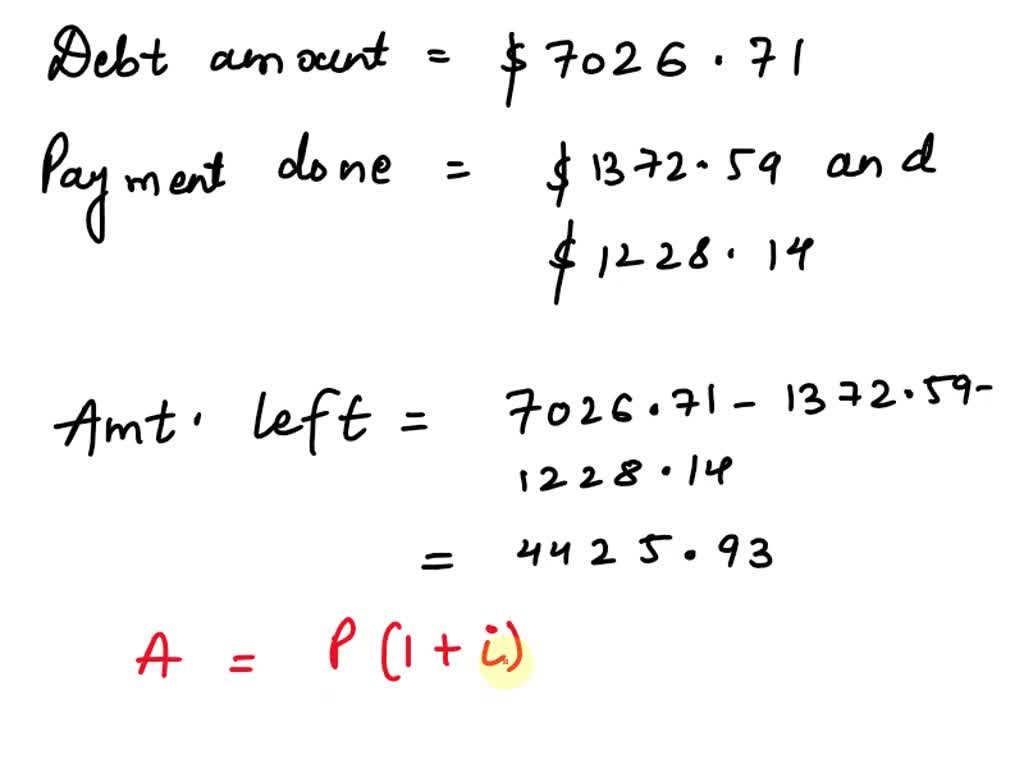 Debt amount = $ 7026.71
Payment done = $ 1372.59 and
$ 1228.14
Amt. left = 7026.71 - 1372.59-
1228.14
= 4425.93
A = P(1+i)